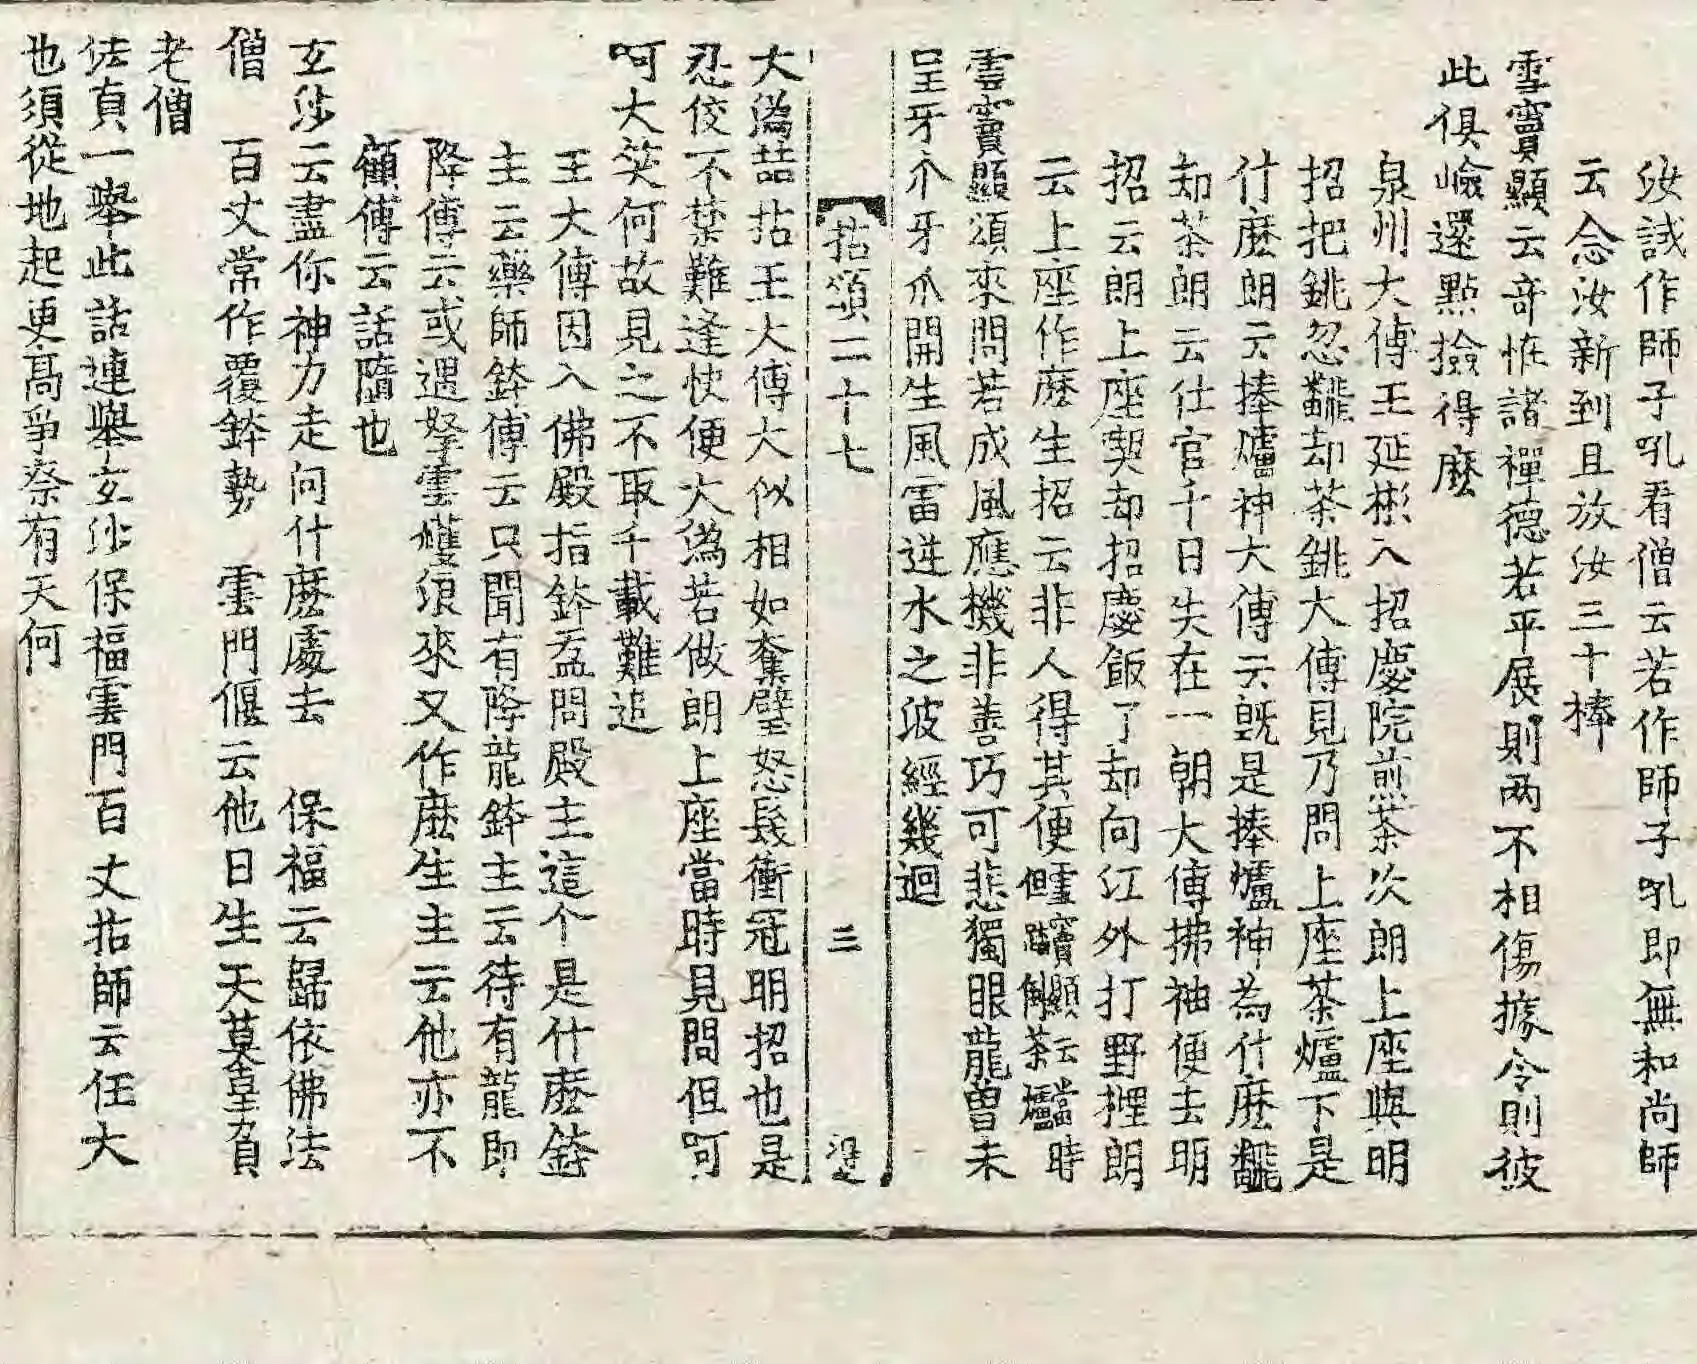 汝試作師子吼看僧云若作師子吼即無和尚師
云念汝新到且放汝三十棒
雪竇顯云奇恠諸禪德若平展則两不相傷據令則彼
此俱嶮還點撿得麽
泉州大傅王延彬入招慶院煎茶次朗上座與明
招把銚忽飜却茶銚大傅見乃問上座茶爐下是
什麽朗云捧爐神大傅云旣是捧爐神為什麽飜
却茶朗云仕官千日失在一朝大傅拂袖便去明
招云朗上座喫却招慶飯了却向江外打野榸朗
云上座作麽生招云非人得其便雪竇顯云當時但踏倒茶爐
雲竇顯頌來問若成風應機非善巧可悲獨眼龍曽未
呈牙爪牙爪開生風雷逆水之波經幾迴
拈頌二十七 三
大潙喆拈王大傅大似相如奪璧怒髮衝冠明招也是
忍俊不禁難逢快便大潙若做朗上座當時見問但呵
呵大笑何故見之不取千載難追
王大傅因入佛殿指鉢盂問殿主這个是什麽鉢
主云藥師鉢傅云只聞有降龍鉢主云待有龍即
降傅云或遇拏雲㸕浪來又作麽生主云他亦不
顧傅云話墮也
玄沙云盡你神力走向什麽處去 保福云歸依佛法
僧 百丈常作覆鉢勢 雲門偃云他日生天莫辜負
老僧
法真一舉此話連舉玄沙保福雲門百丈拈師云任大
也須從地起更高爭柰有天何